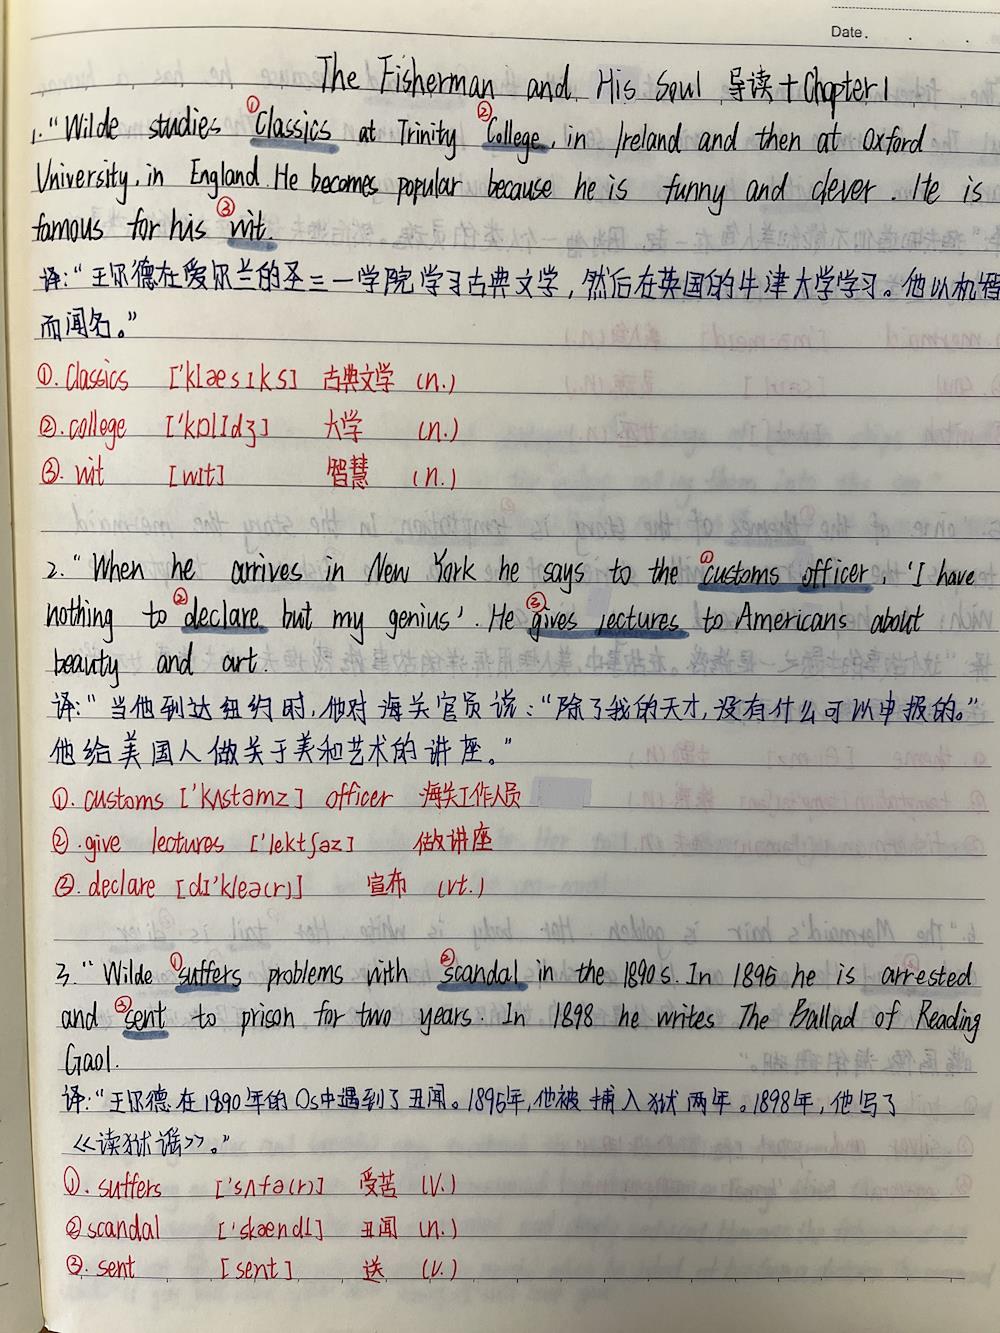 Date. . .
The Fisherman and His Soul 导读+Chapter1
1. "Wilde studies ①Classics at Trinity ②College, in Ireland and then at Oxford
University, in England. He becomes popular because he is funny and clever. He is
famous for his ③wit.
译:"王尔德在爱尔兰的圣三一学院学习古典文学,然后在英国的牛津大学学习。他以机智
而闻名。"
①. Classics ['klæsɪks] 古典文学 (n.)
②. college ['kɒlɪdʒ] 大学 (n.)
③. wit [wɪt] 智慧 (n.)
2. "When he arrives in New York he says to the ①customs officer, 'I have
nothing to ②declare but my genius'. He ③gives lectures to Americans about
beauty and art.
译:"当他到达纽约时,他对海关官员说:"除了我的天才,没有什么可以申报的。"
他给美国人做关于美和艺术的讲座。"
①. customs ['kʌstəmz] officer 海关工作人员
②. give lectures ['lektʃəz] 做讲座
③. declare [dɪ'kleə(r)] 宣布 (vt.)
3. "Wilde ①suffers problems with ②scandal in the 1890s. In 1895 he is arrested
and ③sent to prison for two years. In 1898 he writes The Ballad of Reading
Gaol.
译:"王尔德在1890年的0s中遇到了丑闻。1895年,他被捕入狱两年。1898年,他写了
《读狱谣》。"
①. suffers ['sʌfə(r)] 受苦 (v.)
② scandal ['skændl] 丑闻 (n.)
③. sent [sent] 送 (v.)